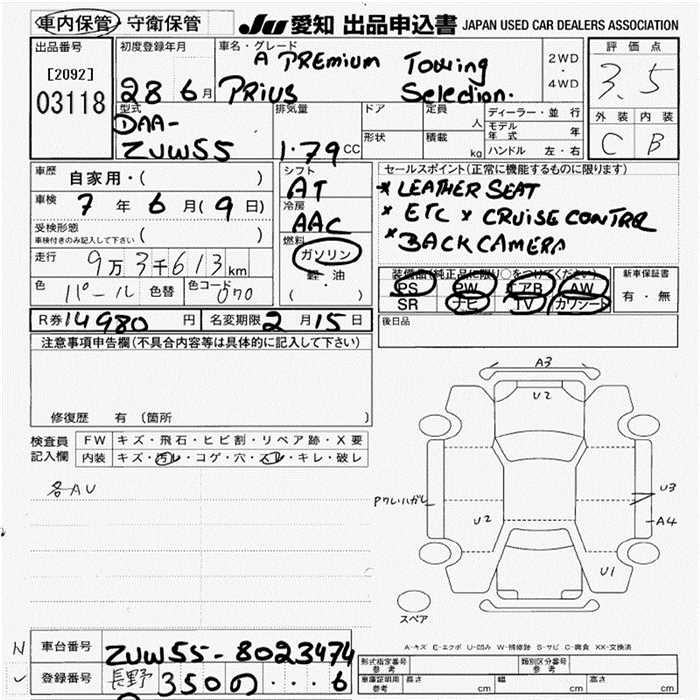 車内保管・守衛保管
JU 愛知 出品申込書 JAPAN USED CAR DEALERS ASSOCIATION
出品番号
[2092]
03118
初度登録年月
28 6月
車名・グレード
A PREMIUM Touring
PRIUS Selection.
2WD
・
4WD
評価点
3.5
外装 内装
C B
型式
DAA-
ZVW55
排気量
1.79 CC
ドア
形状
定員
人
積載
kg
ディーラー・並行
モデル年式 年
ハンドル 左・右
車歴
自家用・( )
車検 7年 6月(9日)
受検形態
車検付きのみ記入して下さい ( )
走行 9万3千613km
色 パール 色替 色コード 070
シフト
AT
冷房
AAC
燃料
ガソリン
軽・油
( )
セールスポイント(正常に機能するものに限ります)
* LEATHER SEAT
* ETC * CRUISE CONTROL
* BACK CAMERA
装備品(純正品に限り○をつけてください)
PS PW エアB AW
SR ナビ TV カワシート
新車保証書
有・無
R券 14980円 名変期限 2月15日
後日品
注意事項申告欄(不具合内容等は具体的に記入して下さい)
修復歴 有(箇所 )
検査員
記入欄
FW キズ・飛石・ヒビ割・リペア跡・X要
内装 キズ・汚レ・コゲ・穴・スレ・キレ・破レ
各AU
A3
U2
PクレハガレU2
U3
A4
U1
スペア
A-キズ E-エクボ U-凹み W-補修跡 S-サビ C-腐食 XX-交換済
車台番号 ZVW55-8023474
登録番号 長野 350の...6
形式指定番号
参考
類別区分番号
参考
車庫証明
参考
長さ cm 幅 cm 高さ cm